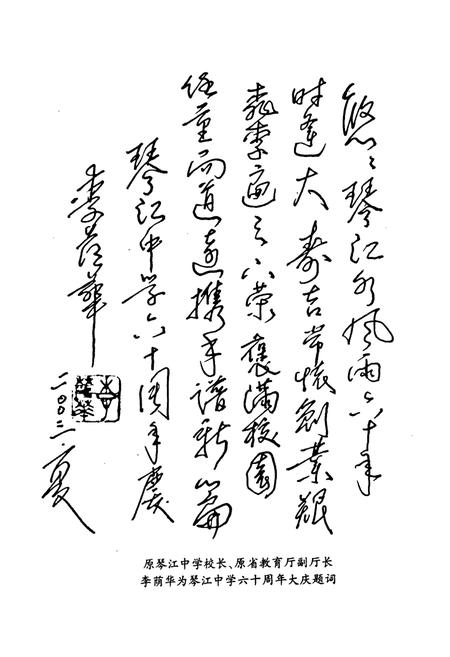 悠悠琴江水风雨六十年
时逢大寿吉常怀创业艰
桃李遍天下荣褒满校园
任重而道远携手谱新篇
琴江中学六十周年庆
李荫华
二〇〇二.夏
原琴江中学校长、原省教育厅副厅长
李荫华为琴江中学六十周年大庆题词